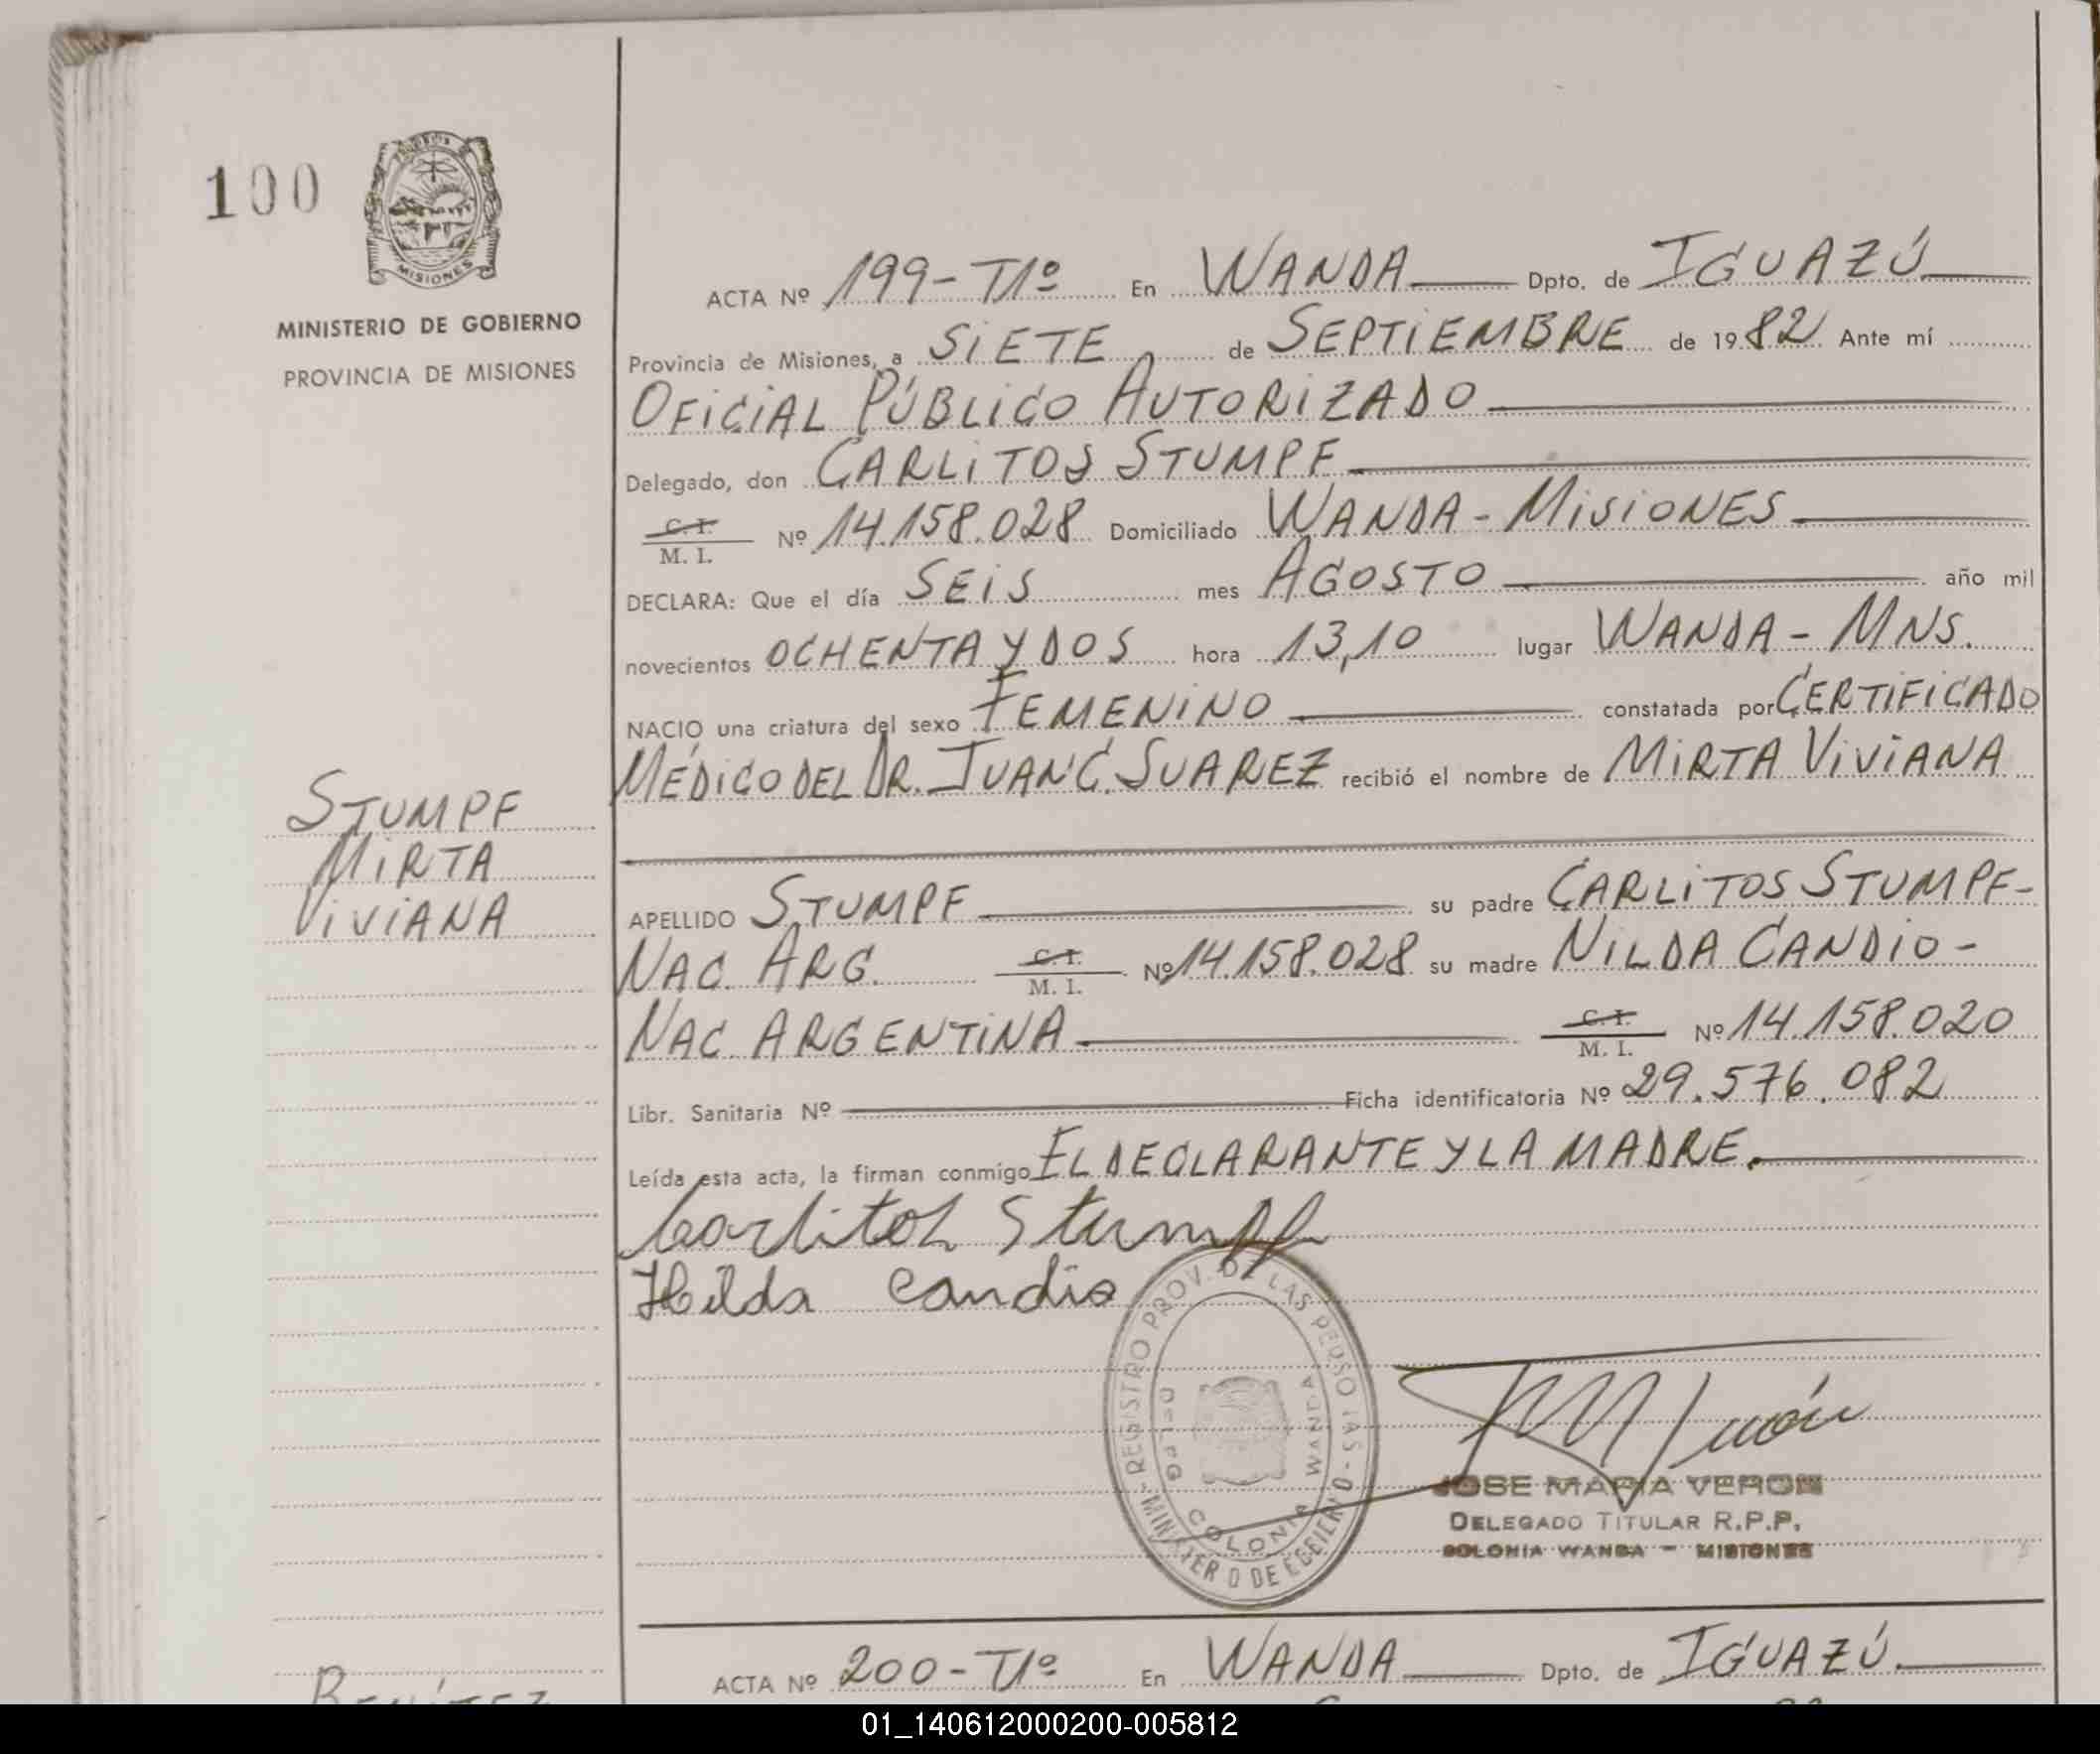 100
MISIONES
MINISTERIO DE GOBIERNO
PROVINCIA DE MISIONES
ACTA Nº 199-T1º En WANDA Dpto. de IGUAZÚ
Provincia de Misiones, a SIETE de SEPTIEMBRE de 1982 Ante mí
OFICIAL PÚBLICO AUTORIZADO
Delegado, don CARLITOS STUMPF
C.I.
M. I. Nº 14.158.028 Domiciliado WANDA - MISIONES
DECLARA: Que el día SEIS mes AGOSTO año mil
novecientos OCHENTA Y DOS hora 13,10 lugar WANDA - MNS.
NACIO una criatura del sexo FEMENINO constatada por CERTIFICADO
MÉDICO DEL DR. JUAN C. SUAREZ recibió el nombre de MIRTA VIVIANA
STUMPF
MIRTA
VIVIANA
APELLIDO STUMPF su padre CARLITOS STUMPF-
NAC. ARG. C.I. M. I. Nº 14.158.028 su madre NILDA CANDIO-
NAC. ARGENTINA C.I. M. I. Nº 14.158.020
Libr. Sanitaria Nº Ficha identificatoria Nº 29.576.082
Leída esta acta, la firman conmigo EL DECLARANTE Y LA MADRE.
Carlitos Stumpf
Hilda Candio
REGISTRO PROV. DE LAS PERSONAS - MINISTERIO DE GOBIERNO
COLONIA WANDA
JOSE MARIA VERON
DELEGADO TITULAR R.P.P.
COLONIA WANDA - MISIONES
ACTA Nº 200-T1º En WANDA Dpto. de IGUAZÚ.
BENÍTEZ
01_140612000200-005812